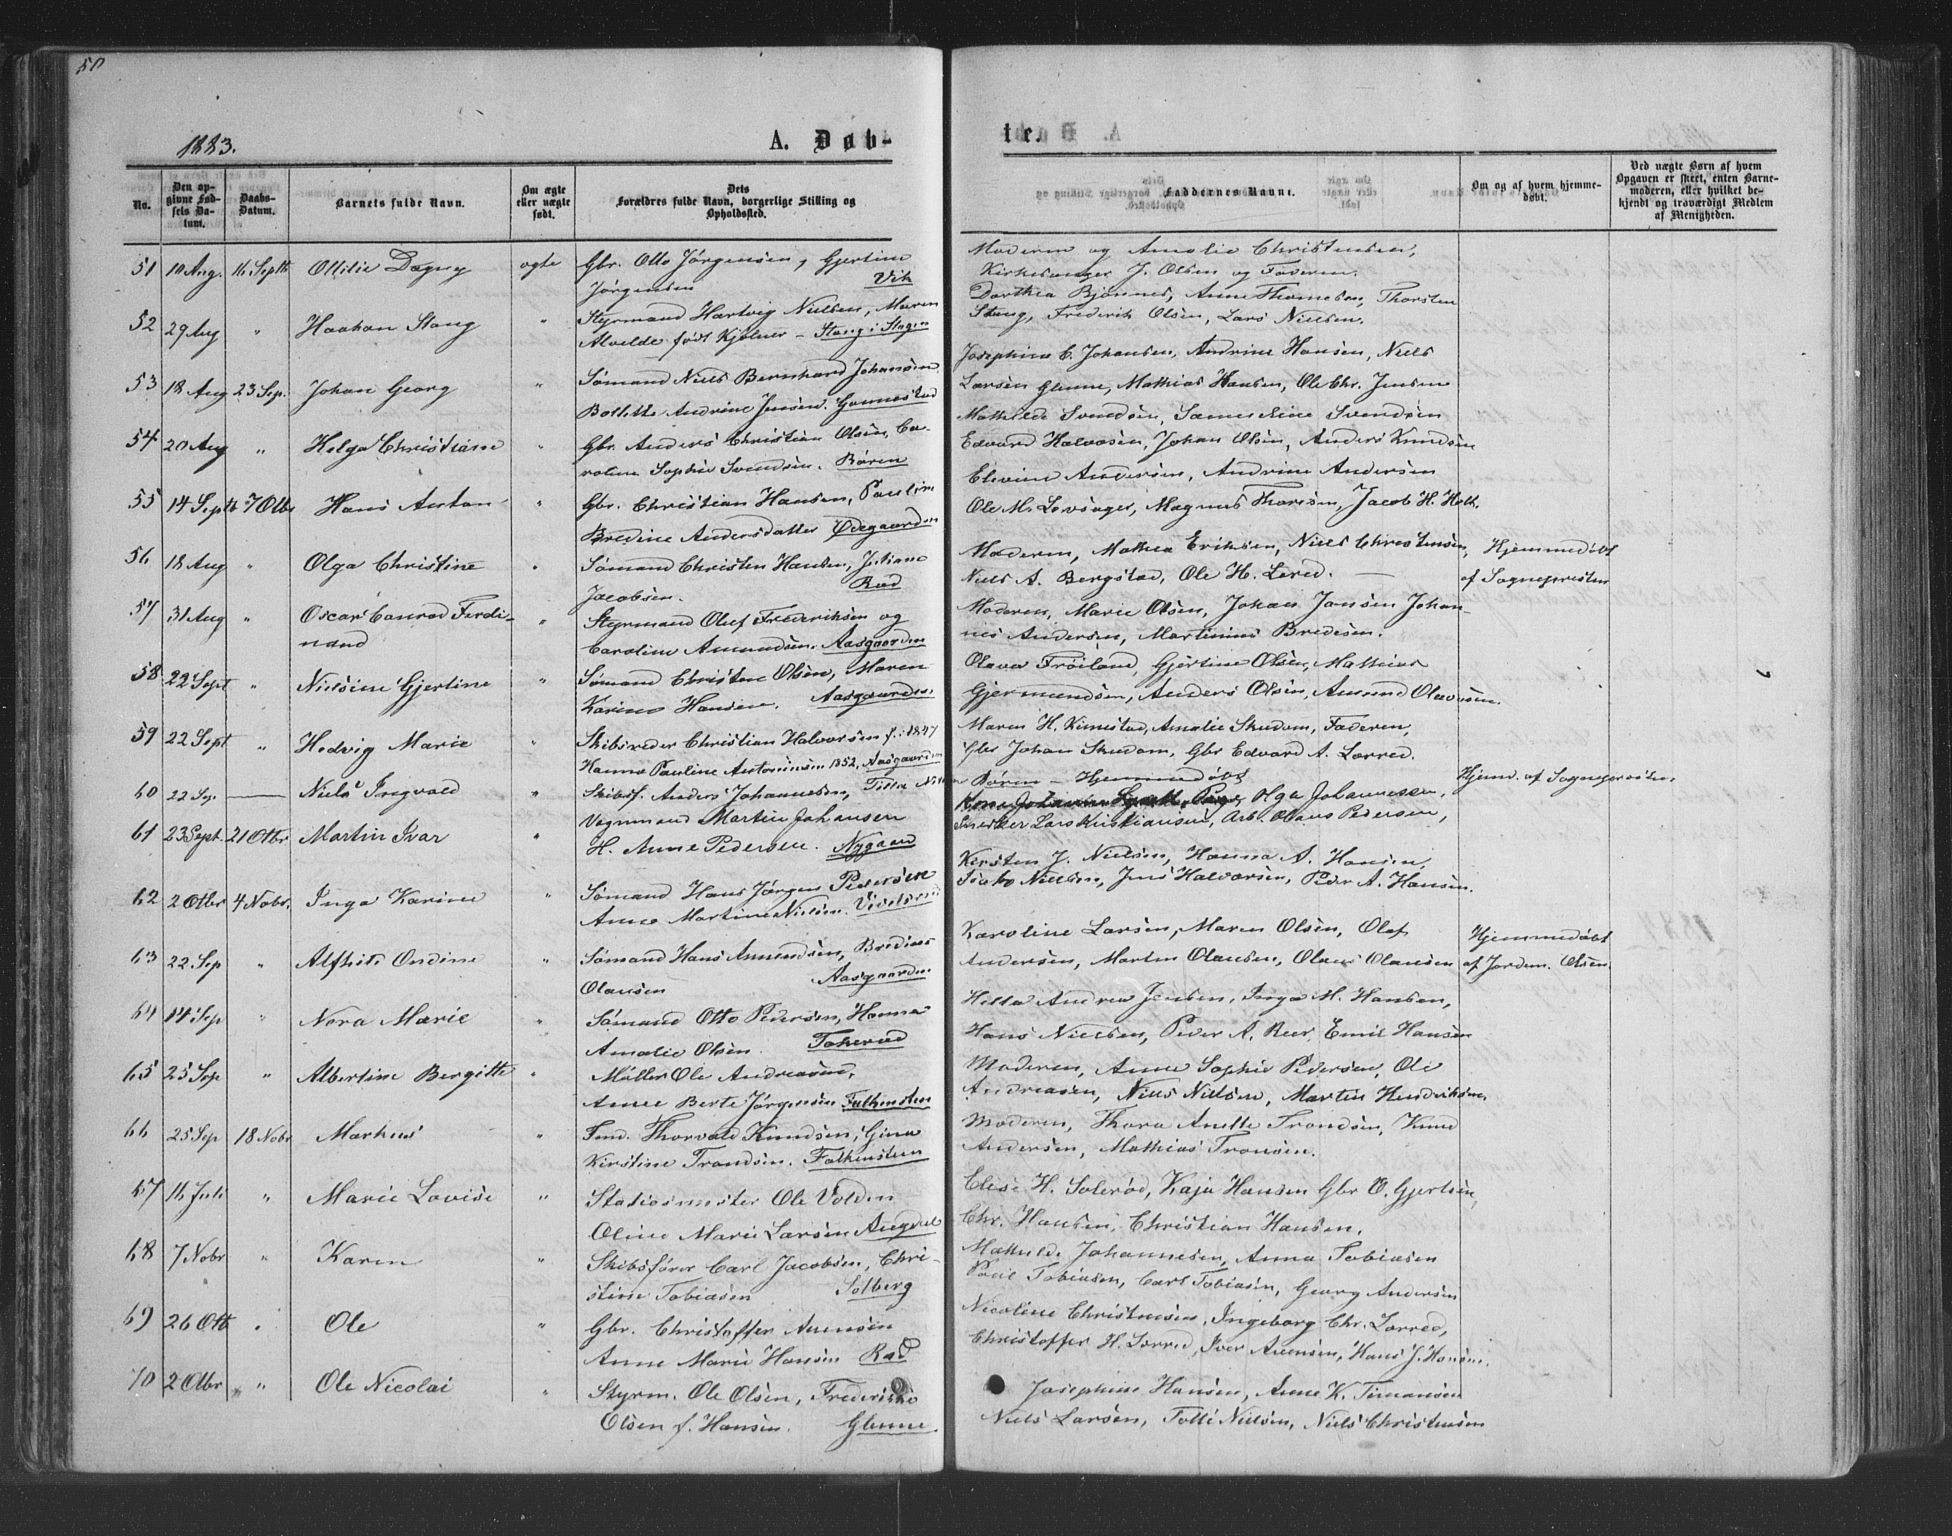 50
1883.
A. Døb-
No.
Den op-
givne Fød-
sels Da-
tum.
Daabs-
Datum.
Barnets fulde Navn.
Om ægte
eller uægte
født.
Dets
Forældres fulde Navn, borgerlige Stilling og
Opholdssted.
51 10 Aug. 16 Septb Ottilie Dagny ægte Gbr. Otto Jörgensen, Gjertine
Jörgensen Vik
52 29 Aug " Haakon Stang " Styrmand Hartvig Nielsen, Maren
Alvelde født Kjölner - Stang i Slagen
53 18 Aug 23 Sep. Johan Georg " Sømand Niels Bernhard Johansen
Bollette Andrine Jensen. Gannestad
54 20 Aug " Helga Christiane " Gbr. Anders Christian Olsen, Ca-
roline Sophie Svendsen. Børen
55 14 Septb 7 Otbr Hans Anton " Gbr. Christian Hansen, Pauline
Bredine Andersdatter Ødegaarden
56 18 Aug " Olga Christine " Sømand Christen Hansen, Juliane
Jacobsen. Rød
57 31 Aug " Oscar Conrad Ferdi-
nand " Styrmand Oluf Frederiksen og
Caroline Amundsen. Aasgaarden
58 22 Sept " Nielsine Gjertine " Sømand Christen Olsen, Maren
Karine Hansen. Aasgaarden
59 22 Sept " Hedvig Marie " Skibsreder Christian Halvorsen f. 1847
Hanna Pauline Antonisen 1852, Aasgaarden
60 22 Sep. — Niels Ingvald " Skibsf. Anders Johannesen,
61 23 Sept. 21 Otbr Martin Ivar " Vognmand Martin Johansen
H. Anne Pedersen. Nygaard
62 2 Otbr 4 Nobr. Inga Karine " Sømand Hans Jørgen Pedersen
Anne Martine Nielsen.
63 22 Sep " Alfhild Ondine " Sømand Hans Amundsen, Bredine
Olausen Aasgaarden
64 14 Sep " Nora Marie " Sømand Otto Pedersen, Hanna
Amalie Olsen. Takerød
65 25 Sep " Albertine Bergitte " Møller Ole Andreasen,
Anne Berte Jørgensen Falkensten
66 25 Sep 18 Nobr Markus " Thorvald Knudsen, Gina
Kirstine Trondsen. Falkensteen
67 16 Juli " Marie Lovise " Stationsmester Ole Volden
Oline Marie Larsen Augdal
68 7 Nobr " Karen " Skibsfører Carl Jacobsen, Chri-
stine Tobiasen Solberg
69 26 Otb " Ole " Gbr. Christoffer Arensen
Anne Marie Hansen Rød
70 2 Otbr " Ole Nicolai " Styrm. Ole Olsen, Frederikke
Olsen f. Hansen. Glenne
te.
Faddernes Navne.
Om og af hvem hjemme-
døbt.
Ved uægte Børn af hvem
Opgaven er skeet, enten Barne-
moderen, eller hvilket be-
kjendt og troværdigt Medlem
af Menigheden.
Moderen og Amalie Christensen,
Kirkesanger J. Olsen og Faderen.
Dorthea Bjønnes, Anne Thomesen, Thorsten
Stang, Frederik Olsen, Lars Nielsen.
Josephine C. Johansen, Andrine Hansen, Niels
Larsen Glenne, Mathias Hansen, Ole Chr. Jensen
Mathilde Svendsen, Samueline Svendsen
Edvard Halvorsen, Johan Olsen, Anders Knudsen
Elevine Andersen, Andrine Andersen
Ole M. Lovsager, Magnus Thorsen, Jacob H. Holt.
Moderen, Mathea Eriksen, Niels Christensen, Hjemmedøbt
Niels A. Bergstad, Ole H. Lered. — af Sognepresten
Moderen, Marie Olsen, Johan Jansen Johan-
nes Andersen, Martinius Bredesen.
Olava Frøiland, Gjertine Olsen, Mathias
Gjermundsen, Anders Olsen, Amund Olavesen.
Maren H. Kimestad, Amalie Skudom, Faderen,
Gbr Johan Skudom, Gbr Edvard A. Lorred.
Børen - Hjemmedøbt Hjemd. af Sognepresten
Olga Johannesen,
Snedker Lars Kristiansen, Arb. Olaus Pedersen,
Kirsten J. Nielsen, Hanna A. Hansen,
Isak Nielsen, Jens Halvorsen, Peder A. Hansen.
Karoline Larsen, Maren Olsen, Olaf Hjemmedøbt
Andersen, Martin Olausen, Olaus Olausen af Jordm. Olsen
Helta Andrea Jensen, Inga M. Hansen,
Hans Nielsen, Peder A. Roer, Emil Hansen
Moderen, Anne Sophie Pedersen, Ole
Andreasen, Niels Nielsen, Martin Hendriksen
Moderen, Thora Anette Trondsen, Knud
Andersen, Mathias Tronsen.
Elise H. Solerød, Kaja Hansen Gbr O. Gjertsen,
Chr. Hansen, Christian Hansen.
Mathilde Johannesen, Anna Tobiasen
Poul Tobiasen, Carl Tobiasen, Georg Andersen
Nicoline Christensen, Ingeborg Chr. Lorred,
Christoffer H. Lorred, Iver Arensen, Hans J. Hansen.
Josephine Hansen, Anne K. Simonsen
Niels Larsen, Tolli Nielsen, Niels Christensen